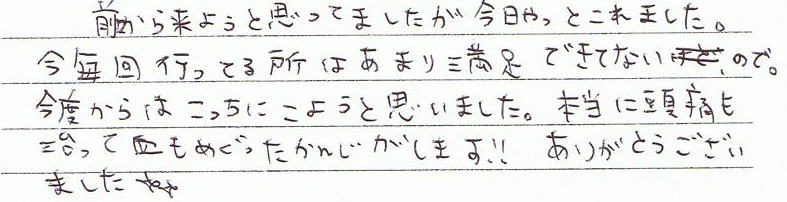 前から来ようと思ってましたが今日やっとこれました。
今毎回行ってる所はあまり満足できてないので。
今度からはこっちにこようと思いました。本当に頭痛も
治って血もめぐったかんじがします!! ありがとうござい
ました